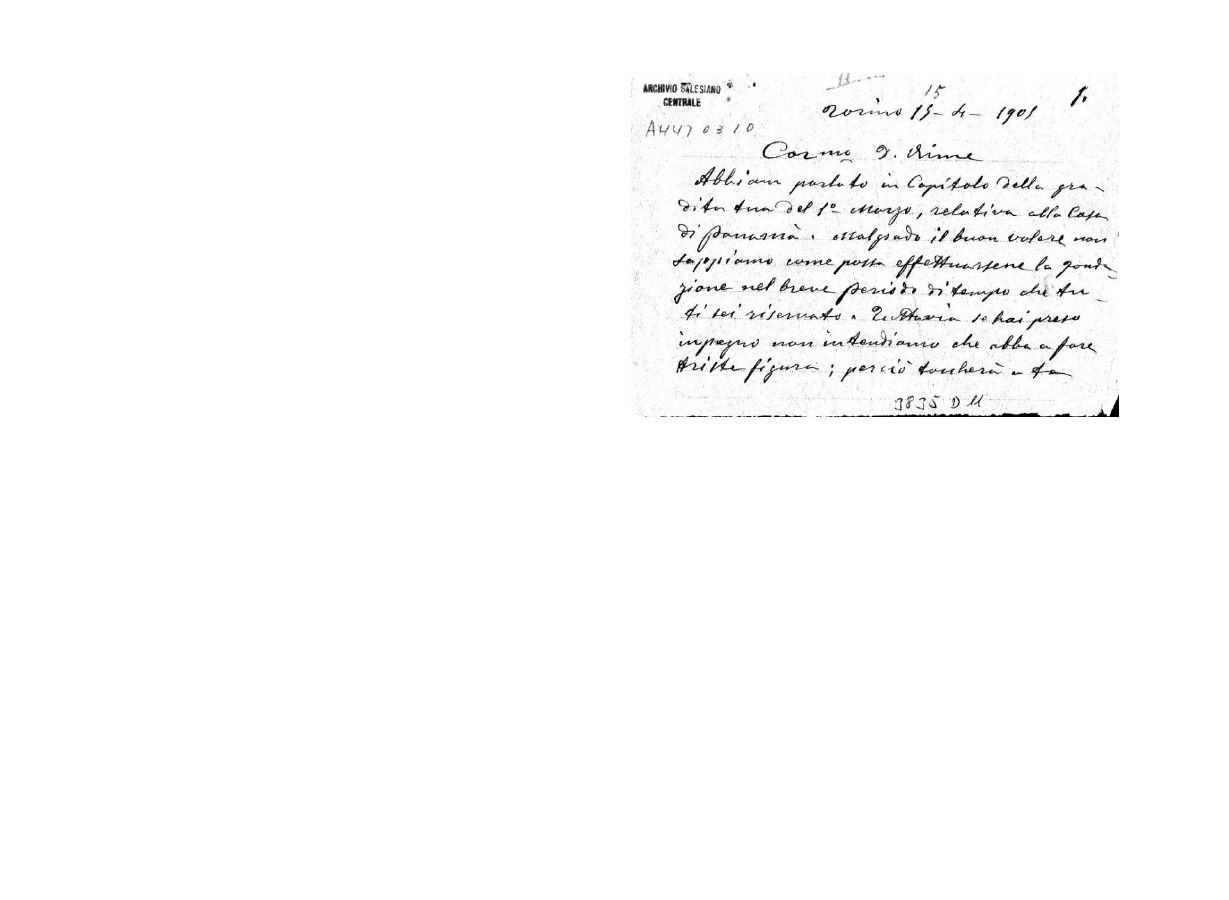 ARCHIVIO SALESIANO
CENTRALE
A4470310
15
1.
Torino 15-4-1901
Car.mo D.
Abbiam parlato in Capitolo della gra-
dita tua del 1º Marzo, relativa alla Casa
di Panamà. Malgrado il buon volere non
sappiamo come possa effettuarsene la fonda-
zione nel breve periodo di tempo che tu
ti sei riservato. Tuttavia se hai preso
impegno non intendiamo che abbi a fare
triste figura; perciò toccherà a te
3835 D 11